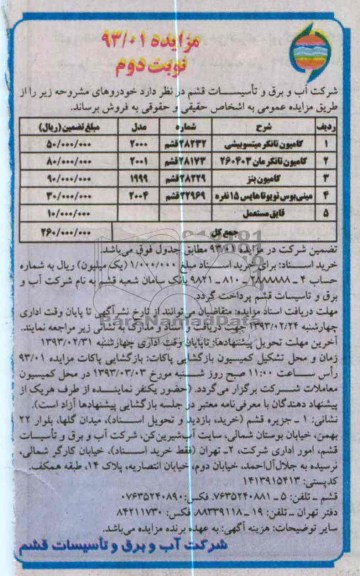 مزایده ۹۳/۰۱
نوبت دوم
شرکت آب و برق و تأسیسات قشم در نظر دارد خودروهای مشروحه زیر را از
طریق مزایده عمومی به اشخاص حقیقی و حقوقی به فروش برساند.
ردیف شرح شماره مدل مبلغ تضمین (ریال)
۱ کامیون تانکر میتسوبیشی ۲۸۲۳۲قشم ۲۰۰۰ ۵۰/۰۰۰/۰۰۰
۲ کامیون تانکر مان ۲۶۰۴۰۳ ۲۸۱۷۳قشم ۲۰۰۱ ۸۰/۰۰۰/۰۰۰
۳ کامیون بنز ۲۸۲۲۹قشم ۱۹۹۹ ۹۰/۰۰۰/۰۰۰
۴ مینی‌بوس تویوتا هایس ۱۵ نفره ۲۲۹۶۹قشم ۲۰۰۴ ۳۰/۰۰۰/۰۰۰
۵ قایق مستعمل ۱۰/۰۰۰/۰۰۰
جمع کل ۲۶۰/۰۰۰/۰۰۰
تضمین شرکت در مزایده ۹۳/۰۱ مطابق جدول فوق می‌باشد.
خرید اسناد: برای خرید اسناد مبلغ ۱/۰۰۰/۰۰۰ (یک میلیون) ریال به شماره
حساب ۴ - ۲۸۸۸۸۸۸ - ۸۱۰ - ۹۸۲۱ بانک سامان شعبه قشم به نام شرکت آب و
برق و تاسیسات قشم پرداخت گردد.
مهلت دریافت اسناد مزایده: متقاضیان می‌توانند از تارخ نشر آگهی تا پایان وقت اداری
چهارشنبه ۱۳۹۳/۰۲/۲۴ زیر مراجعه نمایند.
آخرین مهلت تحویل پیشنهادها: تا پایان وقت اداری چهارشنبه ۱۳۹۳/۰۲/۳۱
زمان و محل تشکیل کمیسیون بازگشایی پاکات: بازگشایی پاکات مزایده ۹۳/۰۱
رأس ساعت ۱۱:۰۰ صبح روز شنبه مورخ ۱۳۹۳/۰۳/۰۳ در محل کمیسیون
معاملات شرکت برگزار می‌گردد. (حضور یکنفر نماینده از طرف هریک از
پیشنهاد دهندگان با معرفی‌نامه معتبر در جلسه بازگشایی پیشنهادها آزاد است).
نشانی: ۱ - جزیره قشم (خرید، بازدید و تحویل اسناد)، میدان گلها، بلوار ۲۲
بهمن، خیابان بوستان شمالی، سایت آب‌شیرین‌کن، شرکت آب و برق و تأسیسات
قشم، امور اداری شرکت، ۲ـ تهران (فقط خرید اسناد)، خیابان کارگر شمالی،
نرسیده به جلال‌آل‌احمد، خیابان دوم، خیابان انتصاریه، پلاک ۱۴، طبقه همکف.
کدپستی: ۱۴۱۳۹۱۵۴۱۳
قشم ـ تلفن: ۵ - ۷۶۳۵۲۴۰۸۸۱ فکس: ۰۷۶۳۵۲۴۰۸۹۰
دفتر تهران ـ تلفن: ۱۹ - ۸۸۳۳۹۱۱۸ فکس: ۸۴۲۱۱۷۳۰
سایر توضیحات: هزینه آگهی: به عهده برنده مزایده می‌باشد.
شرکت آب و برق و تأسیسات قشم